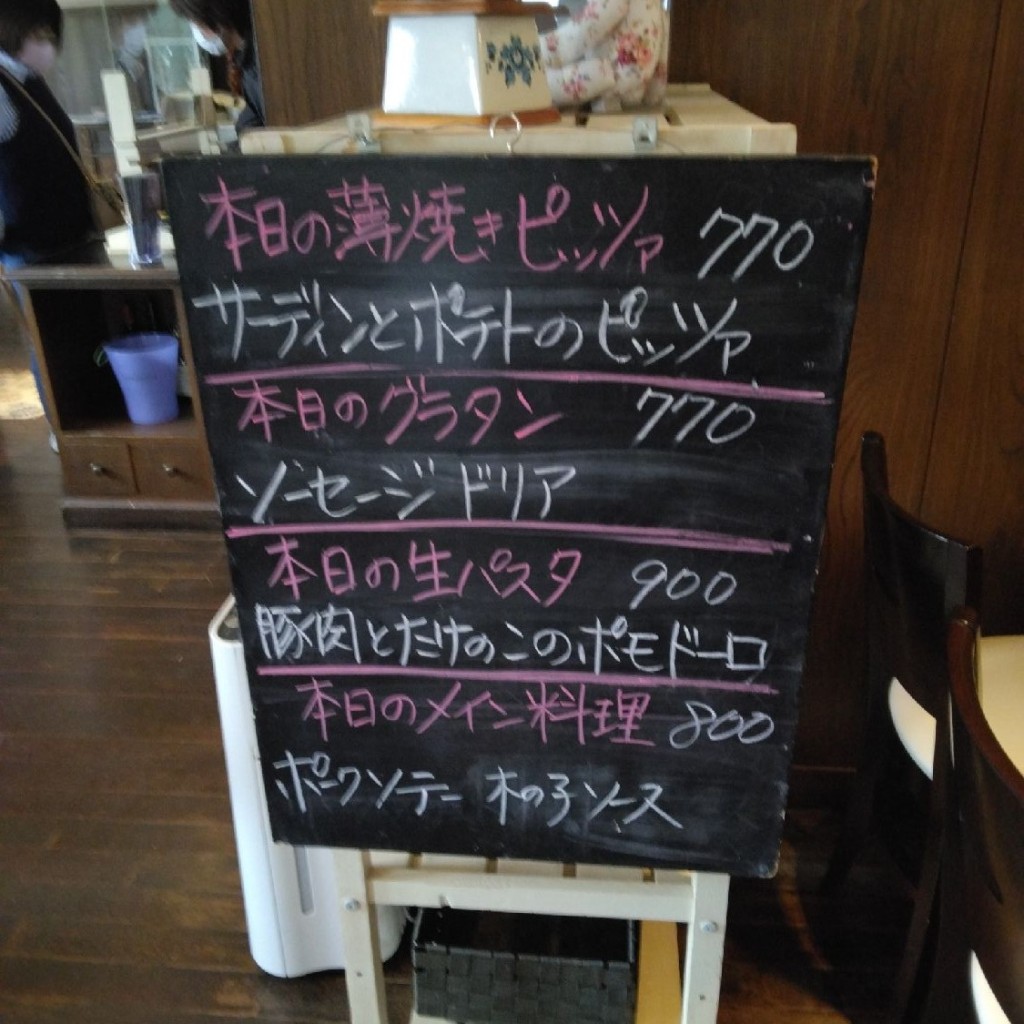 本日の薄焼きピッツァ 770
サーディンとポテトのピッツァ
本日のグラタン 770
ソーセージドリア
本日の生パスタ 900
豚肉とたけのこのポモドーロ
本日のメイン料理 800
ポークソテー 木の子ソース